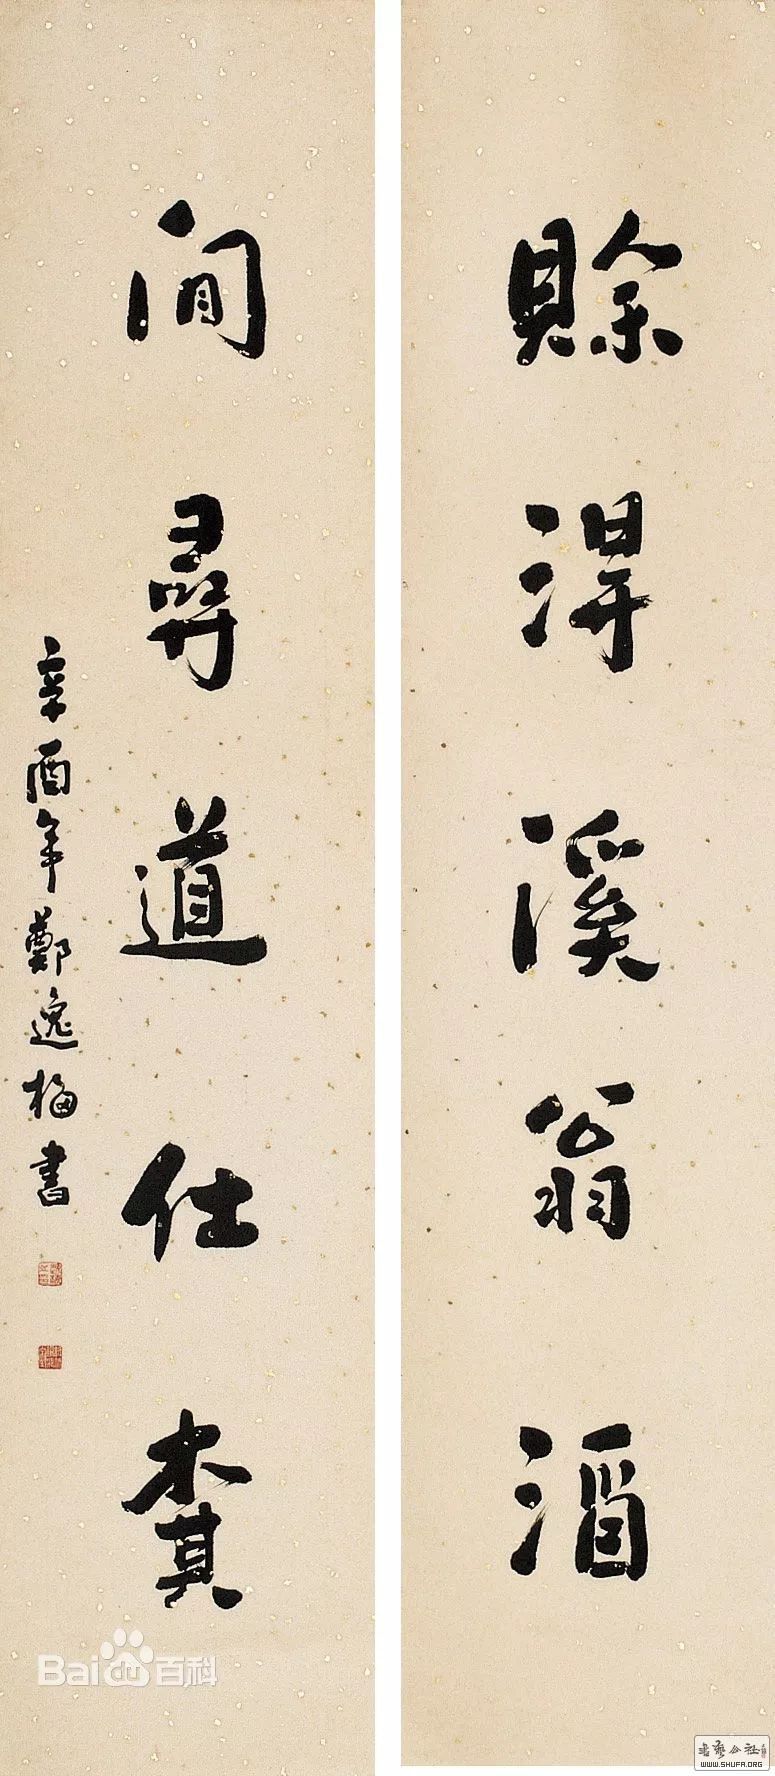 賒得溪翁酒
閒尋道仕棊
辛酉年鄭逸梅書
Bai du 百科
书艺公社
WWW.SHUFA.ORG